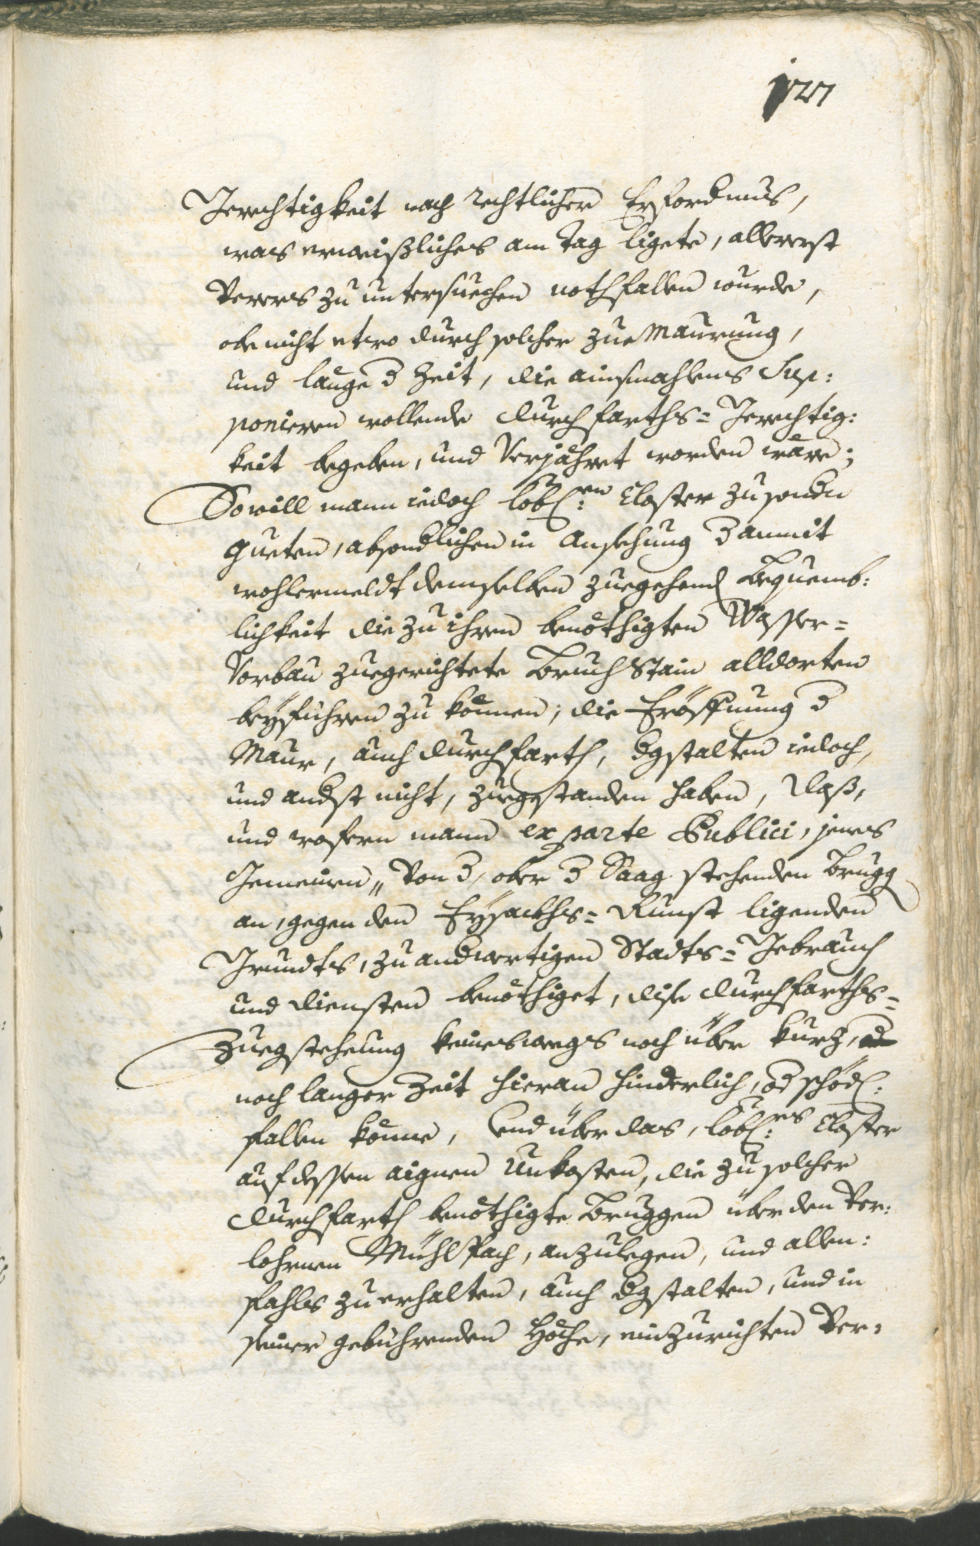 127
Gerechtigkeit nach rechtlicher Erfordnus,
was erweißliches am Tag ligete, allererst
Verers zu untersuechen nothfallen wurde,
obe nicht etwo durch solcher zue Maurung,
und lange d Zeit, die ainsmahlens Sup:
ponieren wollende Durchfarths= Gerechtig:
keit begeben, und Verjähret worden wäre;
So will mann iedoch löbl:en Closter zu sondn
gueten, absondlichen in Ansehung dammit
wohlermeldt demselben zuegehend Bequemb:
lichkeit die zu ihren benöthigten Wasser=
Vorbau zuegerichtete Bruch Stain alldorten
beyführen zu können; die Eröffnung d
Maur, auch Durchfarth, dgstalten iedoch,
und andst nicht, zuegestanden haben, daß,
und wofern mann ex parte Publici, jenes
Gemeinen, Von d, ober d Saag stehenden Brugg
an, gegen den Eysackhs= Runst ligenden
Grundts, zu andwertigen Stadts= Gebrauch
und Diensten benöthiget, dise Durchfarths=
Zuegstehung keineswegs noch über kurz, od
noch langer Zeit hieran hinderlich, od schödl:
fallen könne, Und über das, löbl:es Closter
auf dessen aignen Unkosten, die zu solcher
Durchfarth benöthigte Bruggen über den Ver:
lohrnen Mühl Pach, anzulegen, und allen:
fahls zu erhalten, auch dgstalten, und in
seiner gebührenden Höche, einzurichten Ver: